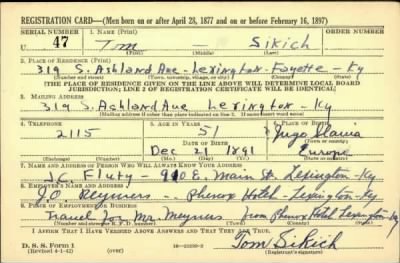 REGISTRATION CARD—(Men born on or after April 28, 1877 and on or before February 16, 1897)
SERIAL NUMBER 1. NAME (Print) ORDER NUMBER
U 47 Tom — Sikich
(First) (Middle) (Last)
2. PLACE OF RESIDENCE (Print)
319 S. Ashland Ave - Lexington - Fayette - Ky
(Number and street) (Town, township, village, or city) (County) (State)
[THE PLACE OF RESIDENCE GIVEN ON THE LINE ABOVE WILL DETERMINE LOCAL BOARD
JURISDICTION; LINE 2 OF REGISTRATION CERTIFICATE WILL BE IDENTICAL]
3. MAILING ADDRESS
319 S. Ashland Ave Lexington - Ky
[Mailing address if other than place indicated on line 2. If same insert word same]
4. TELEPHONE 5. AGE IN YEARS 6. PLACE OF BIRTH
2115 51 Jugo Slavia
DATE OF BIRTH (Town or county)
Dec 21 1891 Europe
(Exchange) (Number) (Mo.) (Day) (Yr.) (State or country)
7. NAME AND ADDRESS OF PERSON WHO WILL ALWAYS KNOW YOUR ADDRESS
J.C. Fluty - E. Main St. Lexington - Ky
8. EMPLOYER'S NAME AND ADDRESS
J.O. Phenix Hotel - Lexington - Ky
9. PLACE OF EMPLOYMENT OR BUSINESS
Travel for Mr. from Phenix Hotel Lexington - Ky
(Number and street or R. F. D. number) (Town) (County) (State)
I AFFIRM THAT I HAVE VERIFIED ABOVE ANSWERS AND THAT THEY ARE TRUE.
D. S. S. Form 1
(Revised 4-1-42) (over) Tom Sikich
(Registrant's signature)